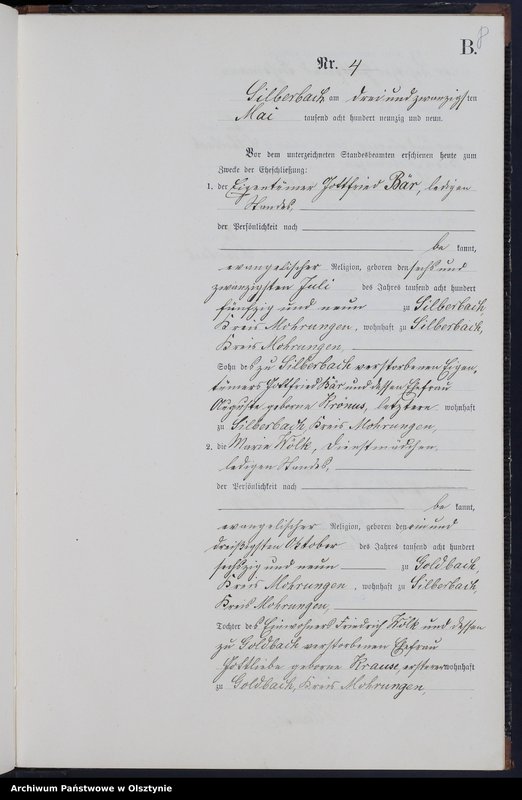 B. 8
Nr. 4
Silberbach am drei und zwanzigsten
Mai tausend acht hundert neunzig und neun.
Vor dem unterzeichneten Standesbeamten erschienen heute zum
Zwecke der Eheschließung:
1. der Eigentümer Gottfried Bär, ledigen
Standes,
der Persönlichkeit nach
be kannt,
evangelischer Religion, geboren den sechs und
zwanzigsten Juli des Jahres tausend acht hundert
fünfzig und neun zu Silberbach,
Kreis Mohrungen, wohnhaft zu Silberbach,
Kreis Mohrungen,
Sohn des zu Silberbach verstorbenen Eigen-
tümers Gottfried Bär und dessen Ehefrau
Auguste geborne Krönus, letztere wohnhaft
zu Silberbach, Kreis Mohrungen,
2. die Marie Kölk, Dienstmädchen,
ledigen Standes,
der Persönlichkeit nach
be kannt,
evangelischer Religion, geboren den ein und
dreißigsten Oktober des Jahres tausend acht hundert
sechszig und neun zu Goldbach,
Kreis Mohrungen, wohnhaft zu Silberbach,
Kreis Mohrungen,
Tochter des Einwohners Friedrich Kölk und dessen
zu Goldbach verstorbenen Ehefrau
Gottliebe geborne Krause, ersterer wohnhaft
zu Goldbach, Kreis Mohrungen,
Archiwum Państwowe w Olsztynie